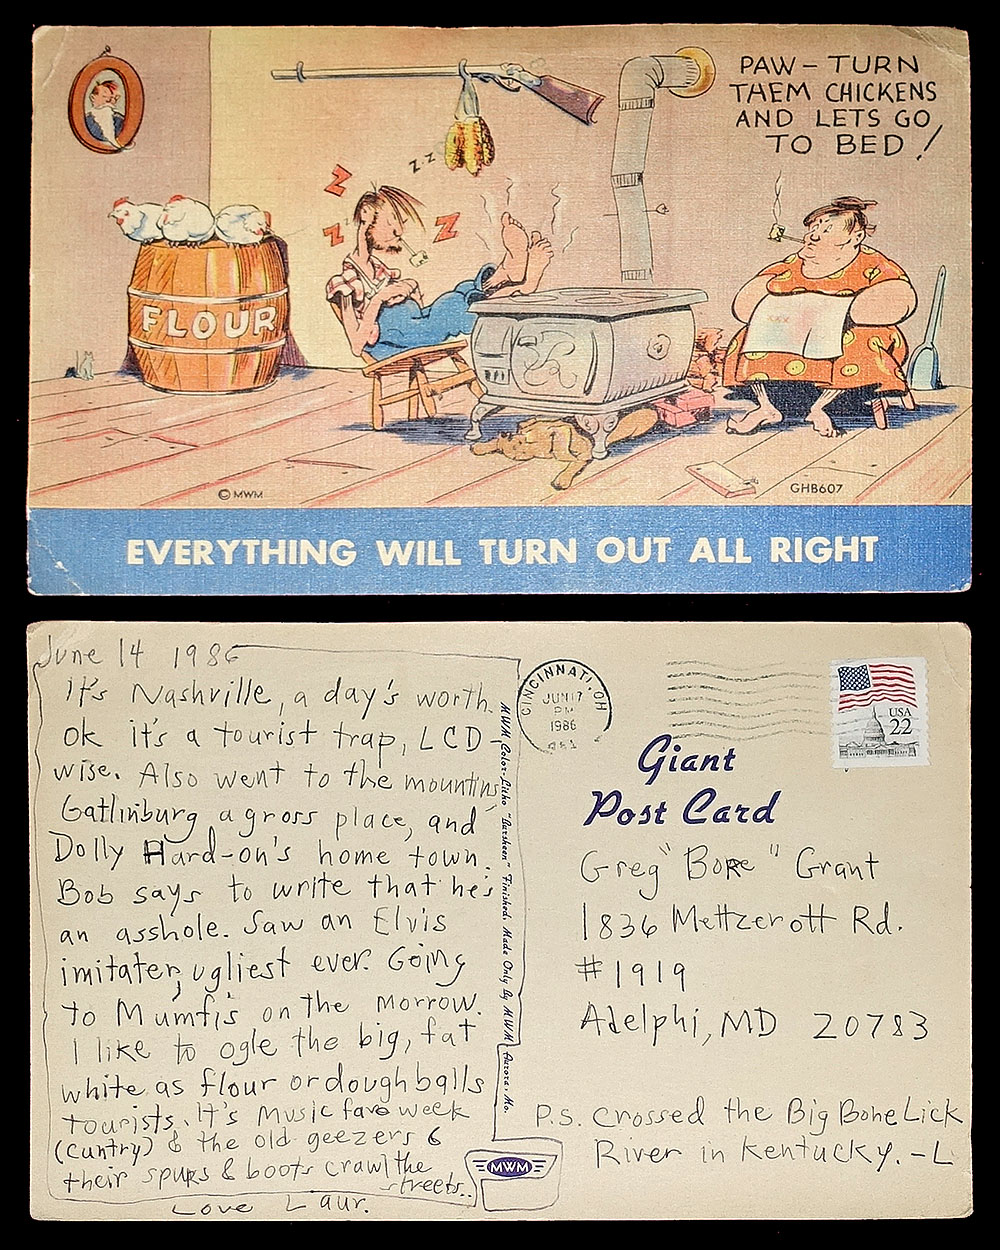 PAW – TURN
THEM CHICKENS
AND LETS GO
TO BED!
Z
Z
Z
Z
Z·Z
FLOUR
XXX
© MWM
GHB607
EVERYTHING WILL TURN OUT ALL RIGHT
June 14 1986
It's Nashville, a day's worth.
Ok it's a tourist trap, LCD-
wise. Also went to the mountins
Gatlinburg a gross place, and
Dolly Hard-on's home town.
Bob says to write that he's
an asshole. Saw an Elvis
imitater, ugliest ever. Going
to Mumfis on the morrow.
I like to ogle the big, fat
white as flour or dough balls
tourists. It's Music fare week
(cuntry) & the old geezers &
their spurs & boots crawl the
streets..
Love Laur.
MWM Color-Litho "Larsheen" Finished. Made Only By MWM, Aurora, Mo.
MWM
CINCINNATI, OH
JUN 17
PM
1986
451
USA
22
Giant
Post Card
Greg "Bore" Grant
1836 Mettzerott Rd.
#1919
Adelphi, MD 20783
P.S. Crossed the Big Bone Lick
River in Kentucky. -L